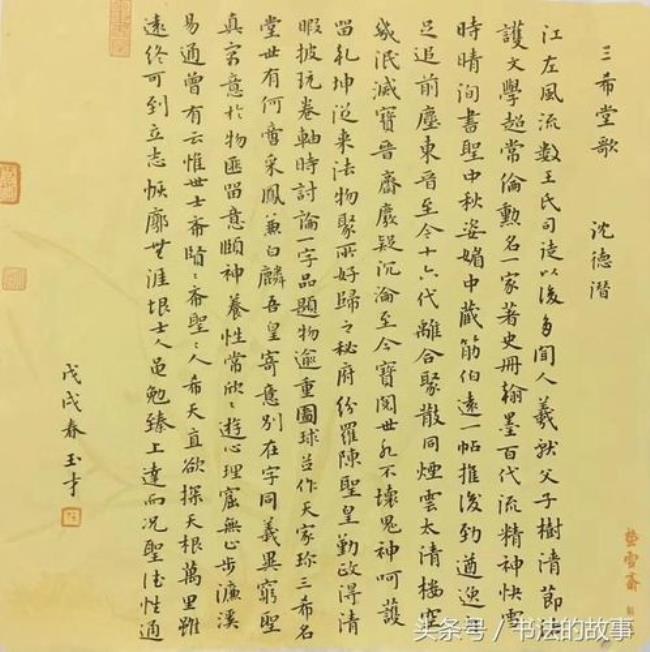 三希堂歌 沈德潛
江左風流數王氏司徒以後多聞人羲獻父子樹清節
護文學超常倫勳名一家著史冊翰墨百代流精神快雪
時晴洵書聖中秋姿媚中藏筋伯遠一帖推後勁遒逸
足追前塵東晉至今十六代離合聚散同煙雲太清樓空
歲泯滅寶晉齋廢疑沉淪至今寶閱世永不壞鬼神呵護
留乾坤從来法物聚所好歸之秘府紛羅陳聖皇勤政得清
暇披玩卷軸時討論一字品題物逾重圖球並作天家珍三希名
堂世有何啻采鳳兼白麟吾皇寄意别在字同義異窮聖
真寓意於物匪留意頤神養性常欣々遊心理窟無止步濂溪
易通曾有云惟世士希賢々希聖々人希天直欲探天根萬里雖
遠終可到立志恢廓無涯垠士人黽勉臻上達而况聖德性通
戊戌春玉才
螢雪齋
头条号/书法的故事